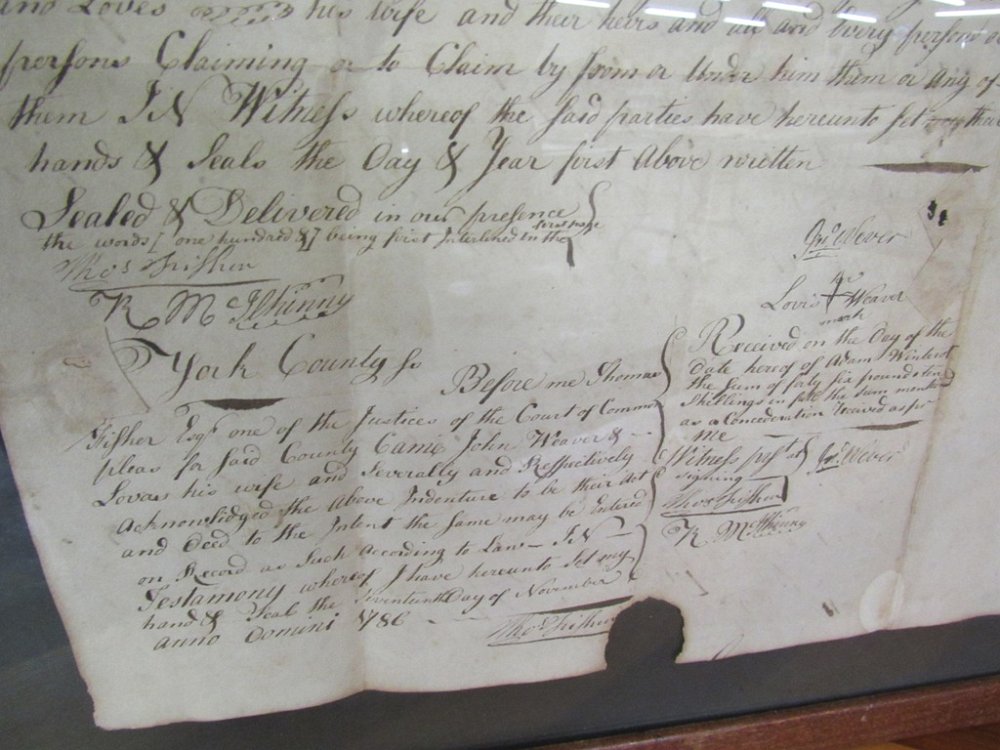 and Loves his wife and their heirs and all and Every person or
persons Claiming or to Claim by from or Under him them or any of
them IN Witness whereof the said parties have hereunto set their
hands & Seals the Day & Year first Above written
Sealed & Delivered in our presence
the words [ one hundred & ] being first Interlined in the
Thos Fisher
R Mc
York County Ss
Before me Thomas
Fisher Esqr one of the Justices of the Court of Common
pleas for said County Came John Weaver &
Lovas his wife and Severally and Respectively
acknowlidged the Above Indenture to be their Act
and Deed to the Intent the Same may be Entered
on Record as Such According to Law IN
Testamony whereof I have hereunto Set my
hand & Seal the Seventeenth Day of November
anno Domini 1786
Thos Fisher
Jno Wever
her
Lovis + Weaver
mark
Received on the Day of the
Date hereof of Adam
the Sum of forty six pounds ten
Shillings in full the Sum mentiond
as a Concederation received as per
Me
Witness pest at
signing
Jno Wever
Thos Fisher
R Mc